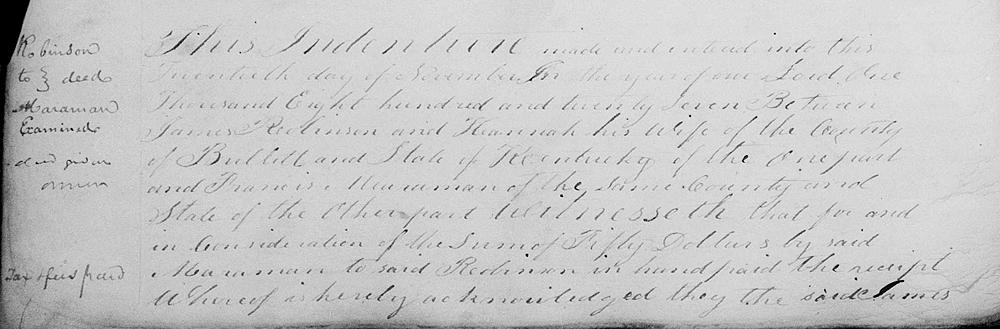 Robinson
to } deed
Maraman
Examined
Tax & fees paid
This Indenture made and entead into this
Twentieth day of November In the year of our Lord One
Thousand Eight hundred and twenty Seven Between
James Robinson and Hannah his Wife of the County
of Bullitt and State of Kentucky of the One part
and Francis Maraman of the Same County and
State of the Other part Witnesseth that for and
in Consideration of the Sum of Fifty Dollars by said
Maraman to said Robinson in hand paid the receipt
Whereof is hereby acknowledged they the said James